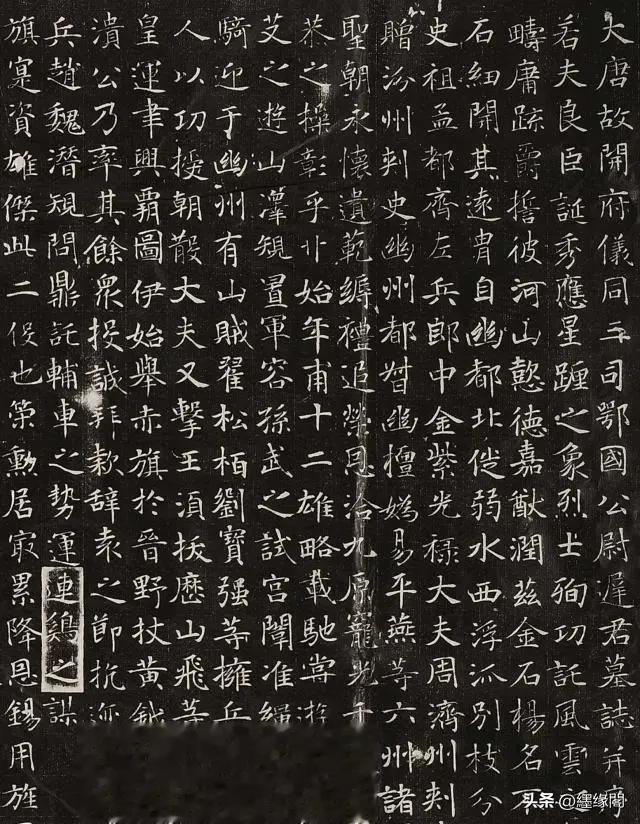 大唐故開府儀同三司鄂國公尉遲君墓誌并序
若夫良臣誕秀應星躔之象烈士殉功託風雲
疇庸疏爵誓彼河山懿德嘉猷潤茲金石楊名不
石細開其遠胄自幽都北徙弱水西浮派別枝分
史祖孟都齊左兵郎中金紫光祿大夫周濟州刺
贈汾州刺史幽州都督幽檀媯易平燕等六州諸
聖朝永懷遺範縟禮追榮恩洽九原寵光于
恭之操彰乎丱始年甫十二雄略載馳嘗遊
艾之遊山澤規置軍容孫武之試宮闈准繩
騎迎于幽州有山賊翟松柏劉寶强等擁兵
人以功授朝散大夫又擊王須拔歷山飛等
皇運聿興霸圖伊始舉赤旗於晉野杖黃鉞
潰公乃率其餘衆投誠拜款辭袁之節抗迹
兵趙魏潛規問鼎託輔車之勢運連鷄之謀
旗寔資雄傑此二役也策勳居冣累降恩錫用旌
头条 @纆缘阁